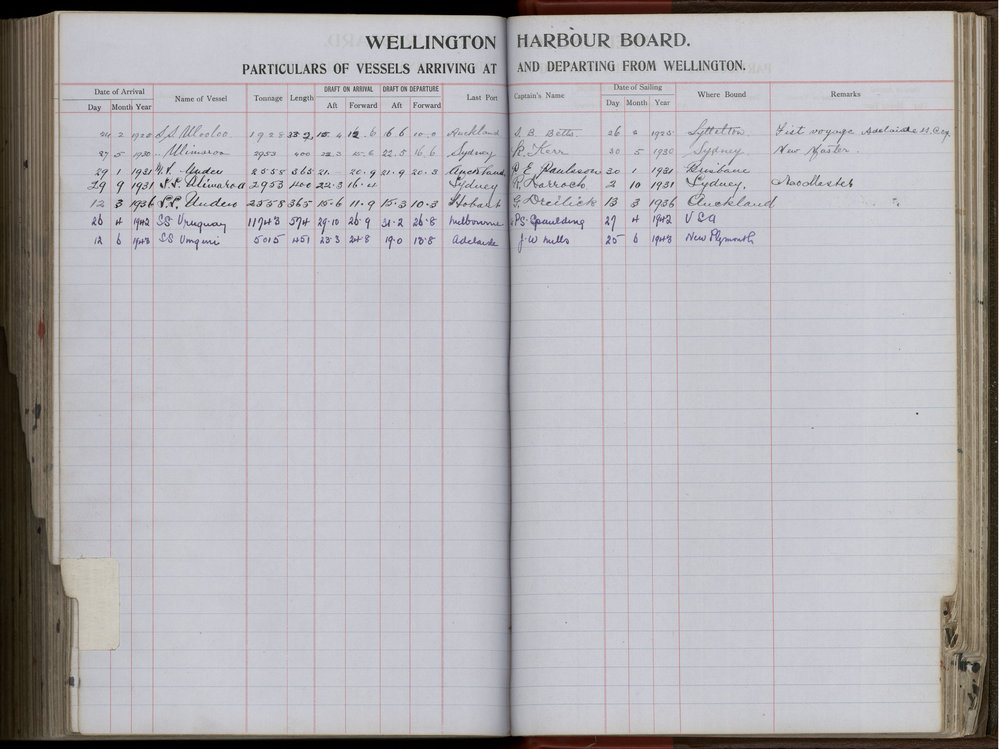 WELLINGTON HARBOUR BOARD.
PARTICULARS OF VESSELS ARRIVING AT AND DEPARTING FROM WELLINGTON.
Date of Arrival Name of Vessel Tonnage Length DRAFT ON ARRIVAL DRAFT ON DEPARTURE Last Port Captain's Name Date of Sailing Where Bound Remarks
Day Month Year Aft Forward Aft Forward Day Month Year
24 2 1920 S.S. Ulooloo 1928 332 15.4 12.6 16.6 10.0 Auckland S. B. Betts. 26 2 1920 Lyttelton First voyage Adelaide S.S. Coy
27 5 1930 Ulimaroa 2953 400 22.3 15.6 22.5 16.6 Sydney R. Kerr 30 5 1930 Sydney New Master.
29 1 1931 2558 365 21. 20.9 21.9 20.3 Auckland E Paulsson 30 1 1931 Brisbane
29 9 1931 S.S. Ulimaroa 2953 400 22.3 16.4 Sydney R. Darroch 2 10 1931 Sydney. New Master
12 3 1936 2558 365 15.6 11.9 15.3 10.3 Hobart G. 13 3 1936 Auckland "
26 4 1942 SS Uruguay 11743 574 29.10 26.9 31.2 26.8 Melbourne P.S. Spaulding 27 4 1942 USA
12 6 1943 SS Umguni 5015 451 25.3 24.8 19.0 18.8 Adelaide J. W Mills 25 6 1943 New Plymouth